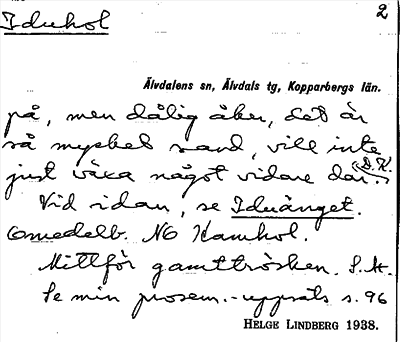 Iduhol
2
Älvdalens sn, Älvdals tg, Kopparbergs län.
på, men dålig åker, det är
så mycket sand, vill inte
just växa något vidare där. (D.K.)
Vid idan, se Iduänget.
Omedelb. NO Kamhol.
Mittför gamttrösken. S.H.
Se min prosem.-uppsats s. 96
HELGE LINDBERG 1938.